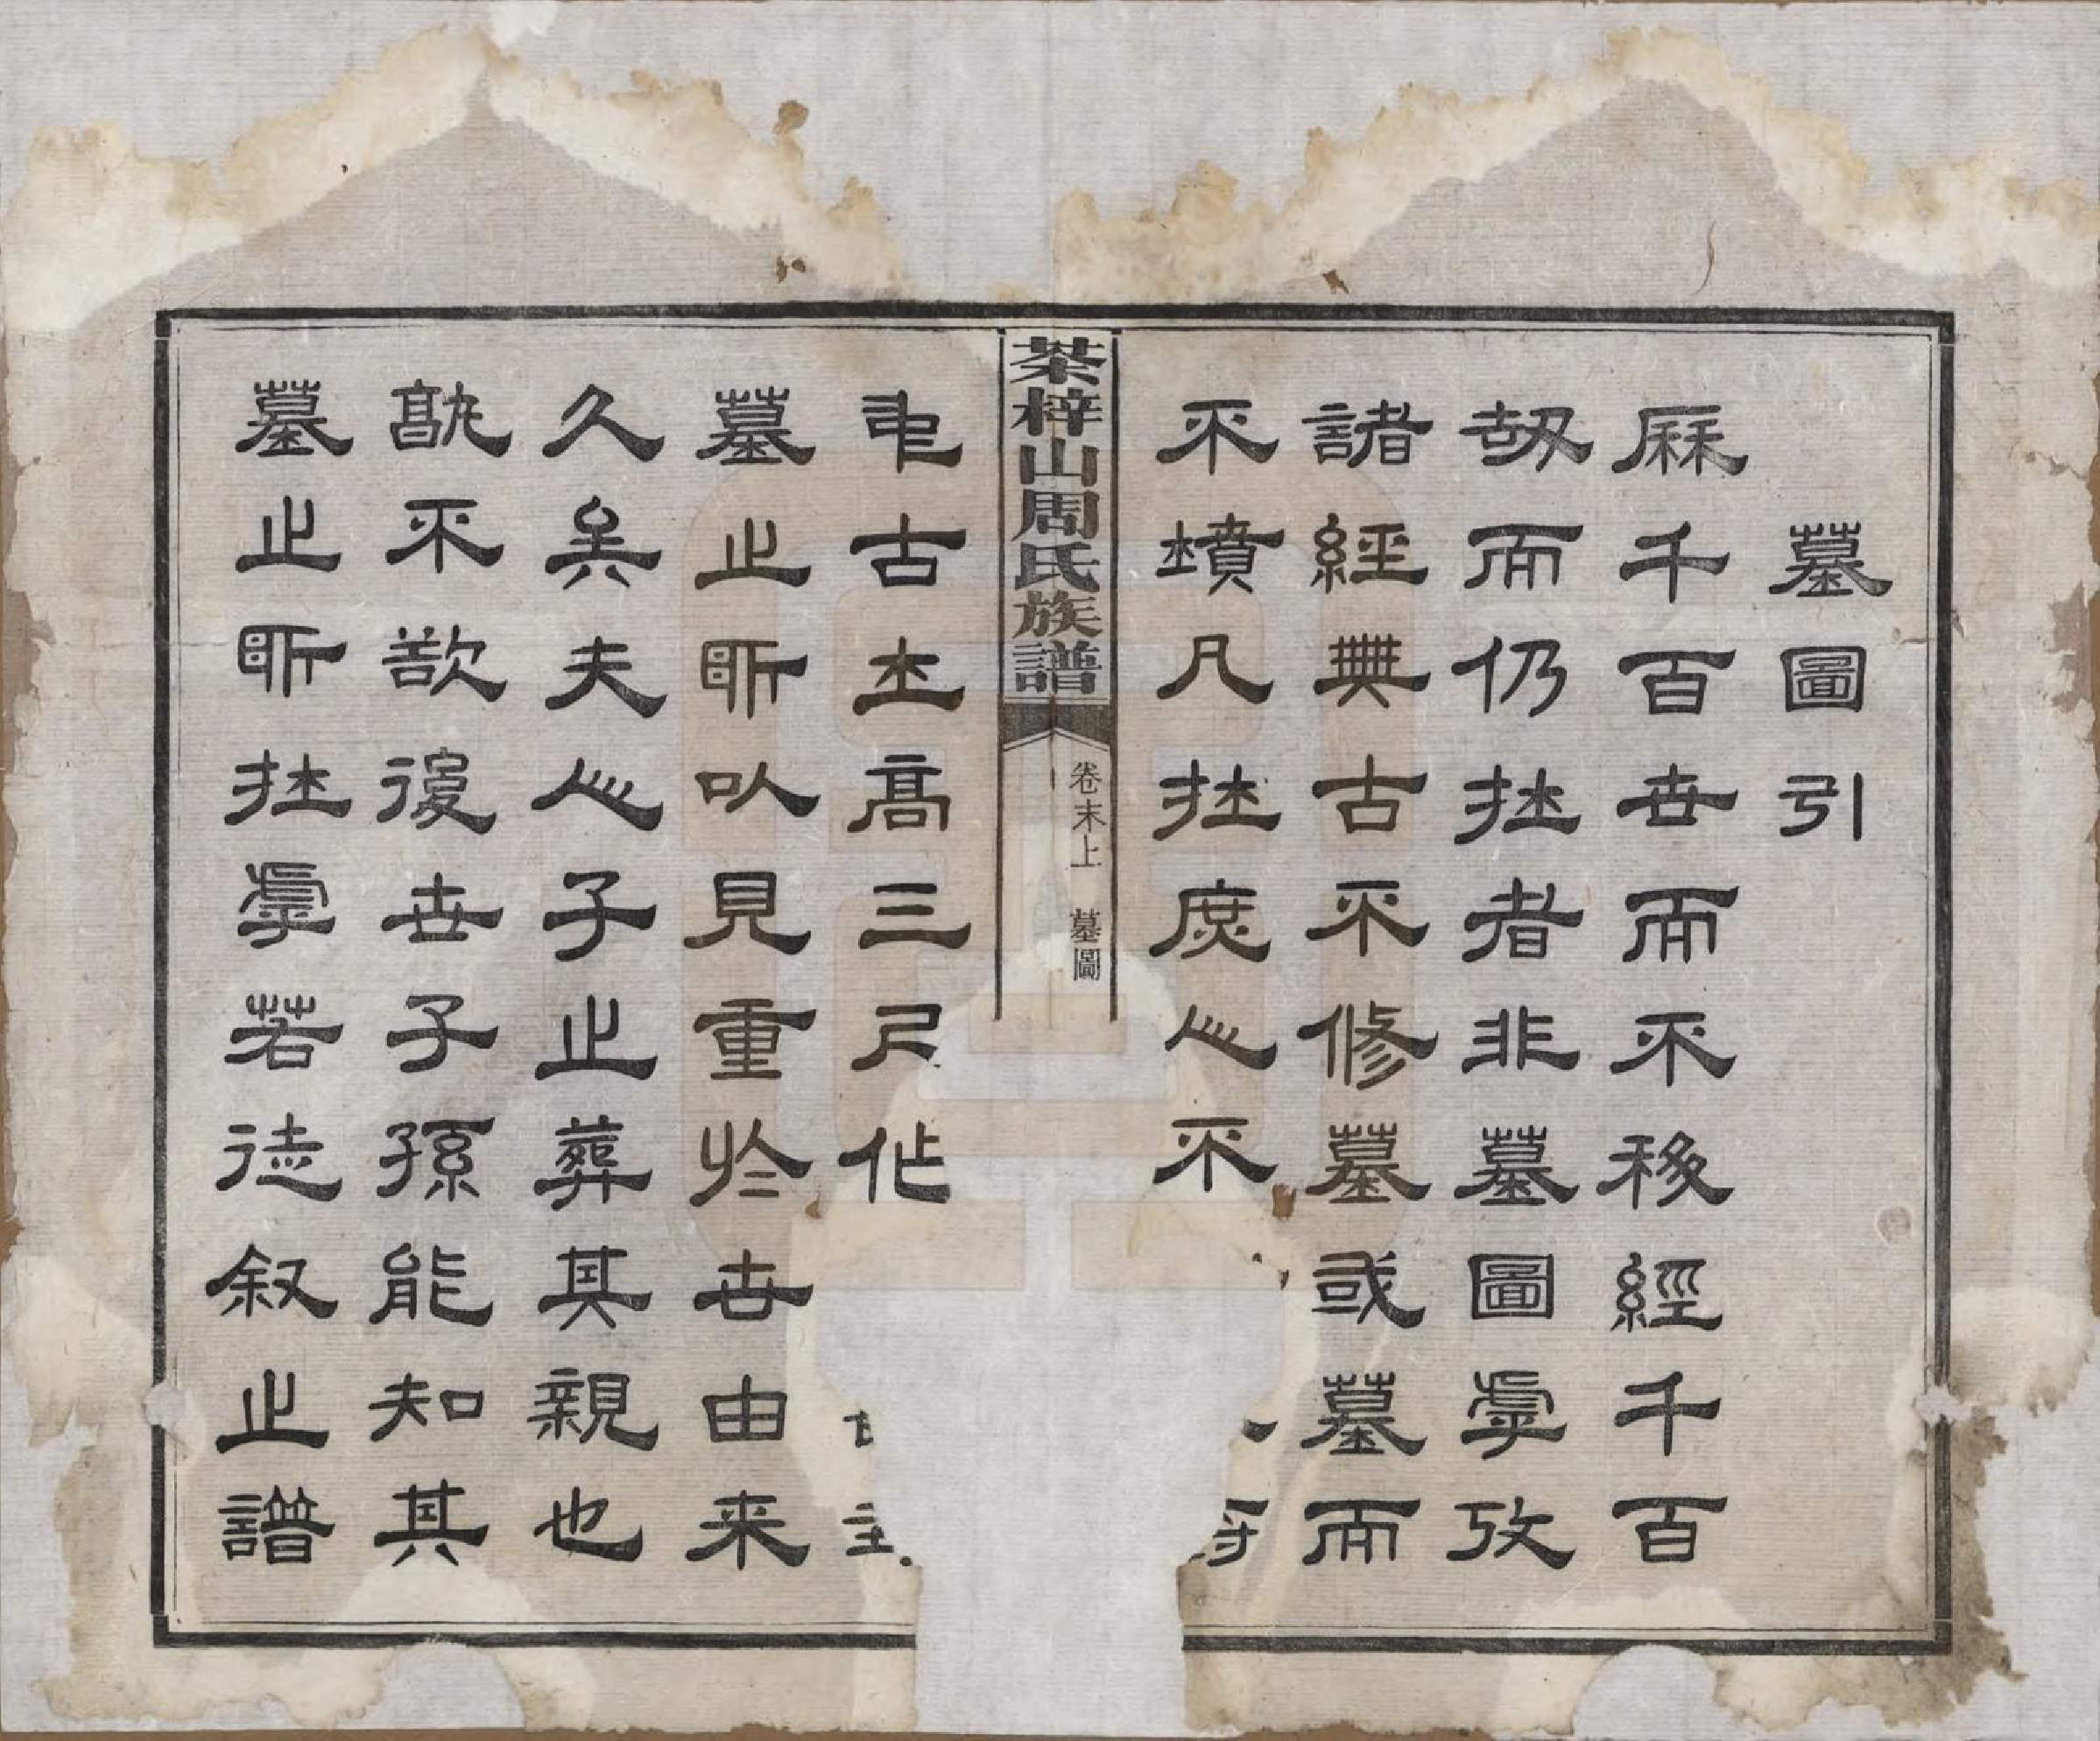 墓圖引
厤千百世而不移經千百
刼而仍在者非墓圖虖攷
諸經典古不修墓或墓而
不墳凡在庶人不
茶梓山周氏族譜
卷末上 墓圖
甫古土高三尺作
墓之所以見重於世由来
久矣夫人子之葬其親也
孰不欲後世子孫能知其
墓之所在虖若徒叙之譜